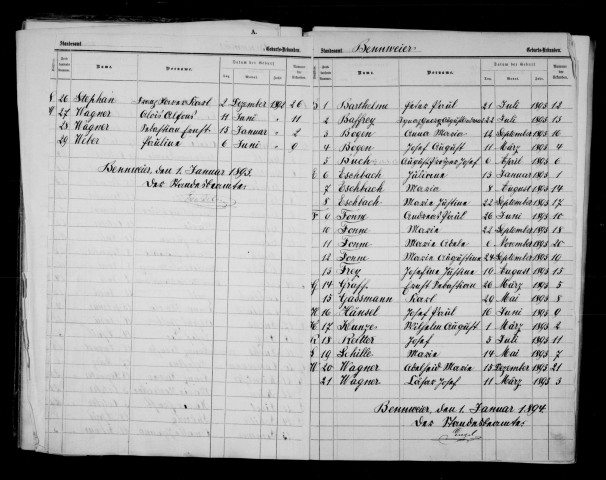 A.
Standesamt Geburts-Urkunden.
Name. Vorname. Datum der Geburt Tag. Monat. Jahr
26 Stephan Franz Xaver Karl 2 Dezember 1892 26
27 Wagner Alois 11 Juni 11
28 Wagner Sebastian Ernst 15 Januar 2
29 Weber Pauline 6 Juni 9
Bennweier, den 1. Januar 1893.
Der Standesbeamte:
Standesamt Bennweier Geburts-Urkunden.
Name. Vorname. Datum der Geburt Tag. Monat. Jahr
B 1 Barthelme Peter Paul 21 Juli 1893 12
2 Baffrey 22 Juli 1893 13
3 Bogen Anna Maria 12 September 1893 16
4 Bogen Josef August 11 März 1893 4
5 Buch Josef 6 April 1893 6
E 6 Eschbach Juliana 13 Januar 1893 1
7 Eschbach Maria 8 August 1893 14
8 Eschbach Maria Justina 22 September 1893 17
F 9 Fonne Andreas Paul 26 Juni 1893 10
10 Fonne Maria 22 September 1893 18
11 Fonne Maria Adele 6 November 1893 20
12 Fonne Maria Augustina 24 September 1893 19
13 Frey Josefina Justina 19 August 1893 15
G 14 Graff Ernst Sebastian 26 März 1893 5
15 Gassmann Karl 29 Mai 1893 8
H 16 Hänsel Josef Paul 16 Juni 1893 9
K 17 Kunze Wilhelm August 1 März 1893 2
18 Josef 3 Juli 1893 11
S 19 Schille Maria 14 Mai 1893 7
W 20 Wagner Adelheid Maria 13 Dezember 1893 21
21 Wagner Josef 11 März 1893 3
Bennweier, den 1. Januar 1894.
Der Standesbeamte: